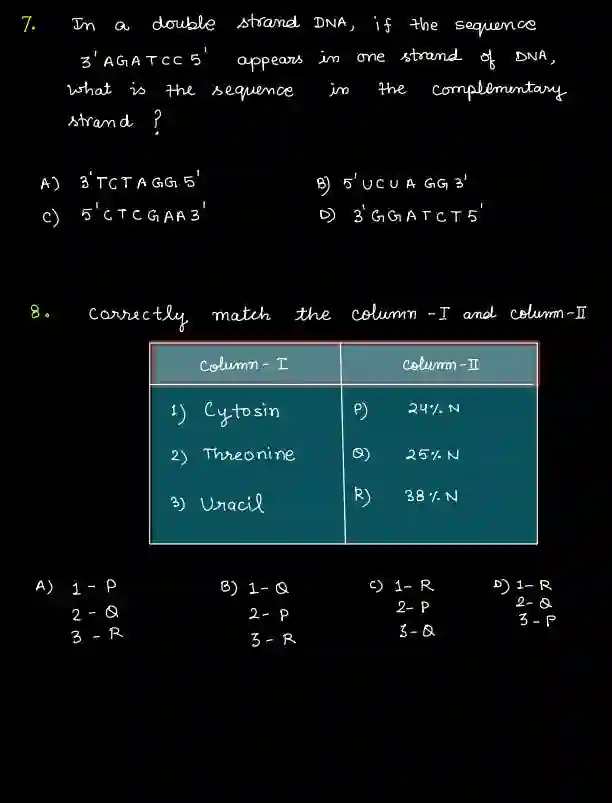 7. In a double strand DNA, if the sequence
3' AGATCC 5' appears in one strand of DNA,
what is the sequence in the complementary
strand ?
A) 3' TCTAGG 5' B) 5' UCUAGG 3'
C) 5' CTCGAA 3' D) 3' GGATCT 5'
8. Correctly match the column - I and column - II
Column - I Column - II
1) Cytosin P) 24% N
2) Threonine Q) 25% N
3) Uracil R) 38% N
A) 1 - P B) 1 - Q C) 1 - R D) 1 - R
2 - Q 2 - P 2 - P 2 - Q
3 - R 3 - R 3 - Q 3 - P